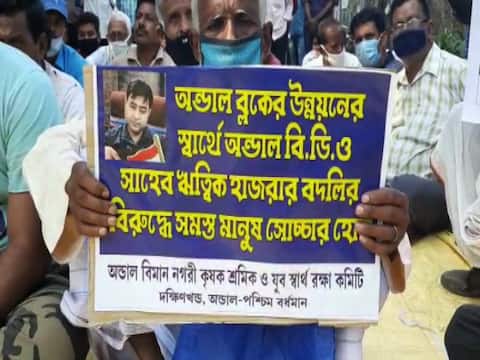 অন্ডাল ব্লকের উন্নয়নের
স্বার্থে অন্ডাল বি.ডি.ও
সাহেব ঋত্বিক হাজরার বদলির
বিরুদ্ধে সমস্ত মানুষ সোচ্চার
অন্ডাল বিমান নগরী কৃষক শ্রমিক ও যুব স্বার্থ রক্ষা কমিটি
দক্ষিণখন্ড, অন্ডাল-পশ্চিম বর্ধমান